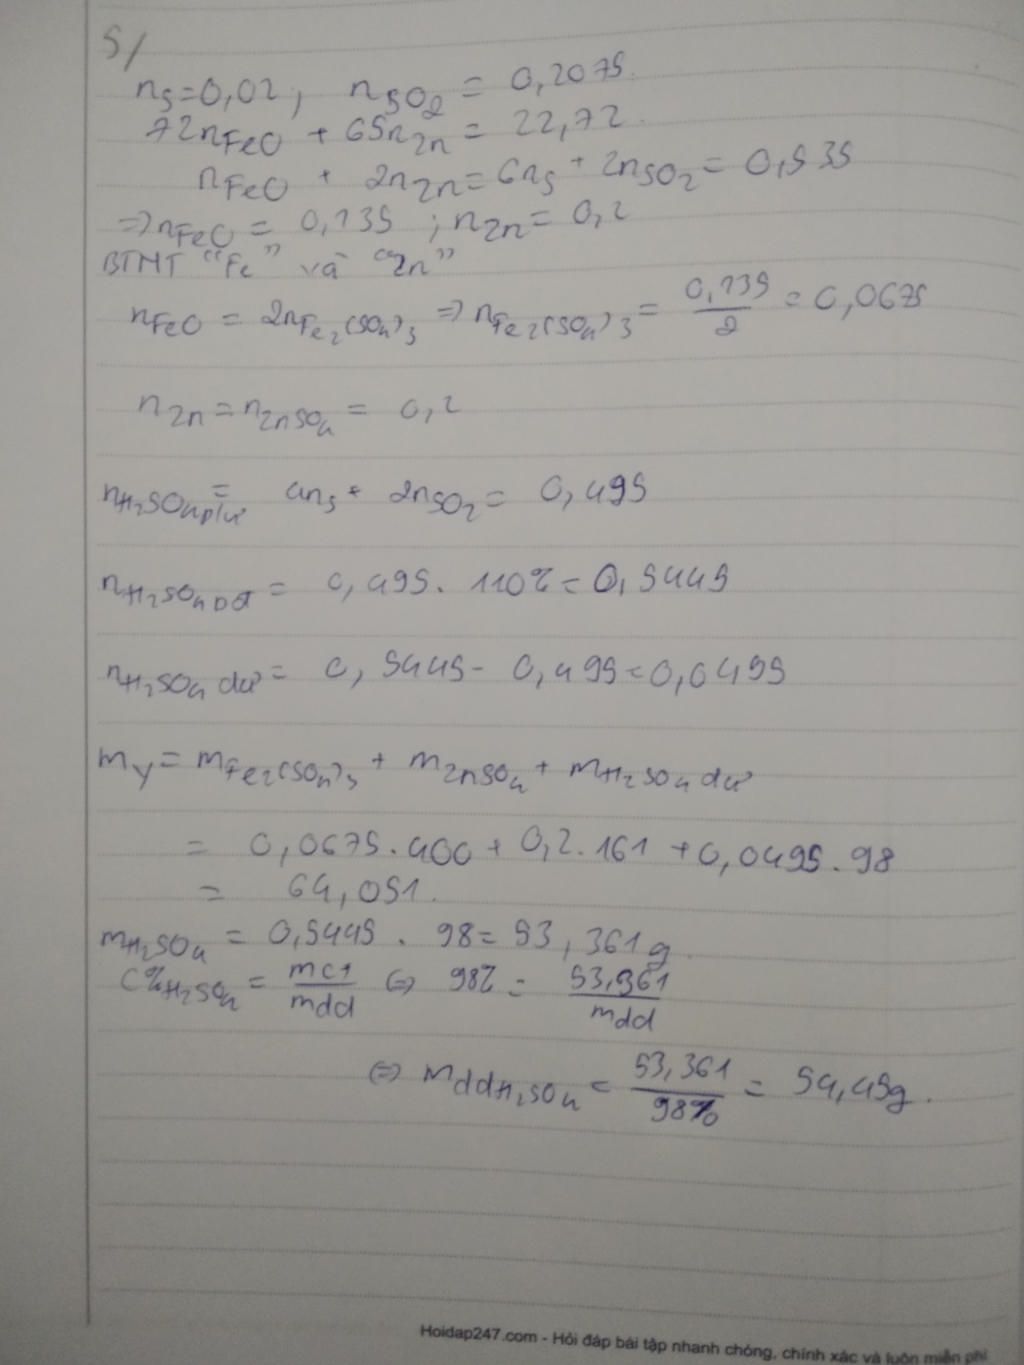 5/
nS=0,02; nSO2 = 0,2075.
72nFeO + 65nZn = 22,72.
nFeO + 2nZn = 6nS + 2nSO2 = 0,535
=> nFeO = 0,135 ; nZn = 0,2
BTNT "Fe" và "Zn"
nFeO = 2nFe2(SO4)3 => nFe2(SO4)3 = 0,135/2 = 0,0675
nZn = nZnSO4 = 0,2
nH2SO4 pứ = 4nS + 2nSO2 = 0,495
nH2SO4 bđ = 0,495. 110% = 0,5445
nH2SO4 dư = 0,5445 - 0,495 = 0,0495
mY = mFe2(SO4)3 + mZnSO4 + mH2SO4 dư
= 0,0675.400 + 0,2.161 + 0,0495.98
= 64,051.
mH2SO4 = 0,5445 . 98 = 53,361g.
C%H2SO4 = mct/mdd <=> 98% = 53,361/mdd
<=> mddH2SO4 = 53,361/98% = 54,45g.
Hoidap247.com - Hỏi đáp bài tập nhanh chóng, chính xác và luôn miễn phí